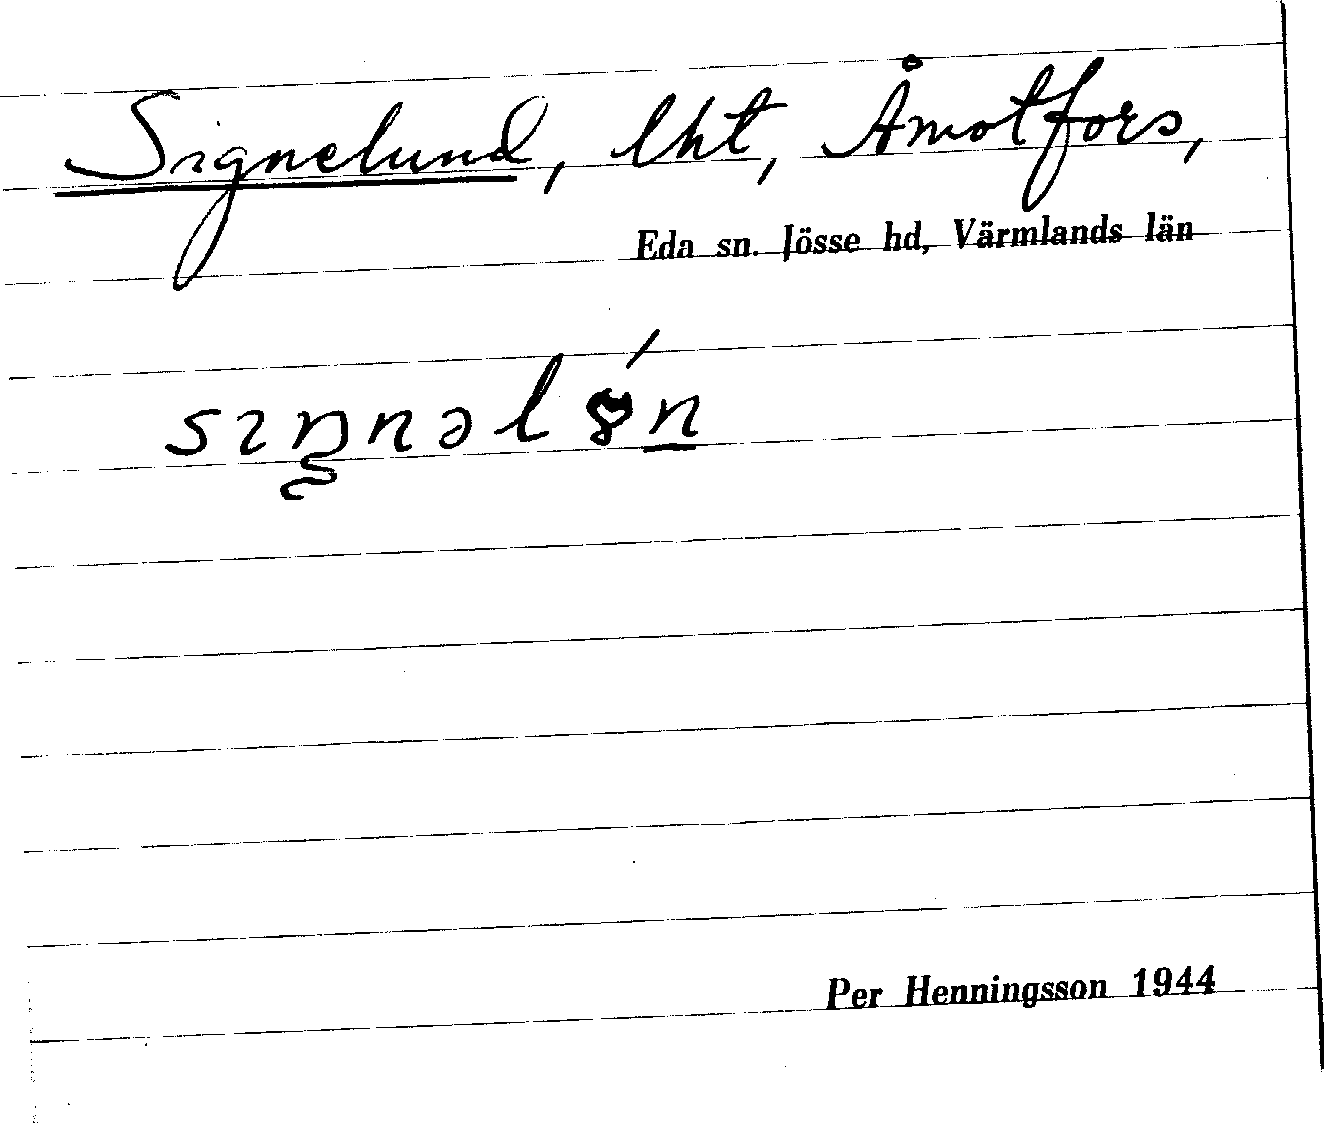 Signelund, lht, Åmotfors,
Eda sn. Jösse hd, Värmlands län
Per Henningsson 1944